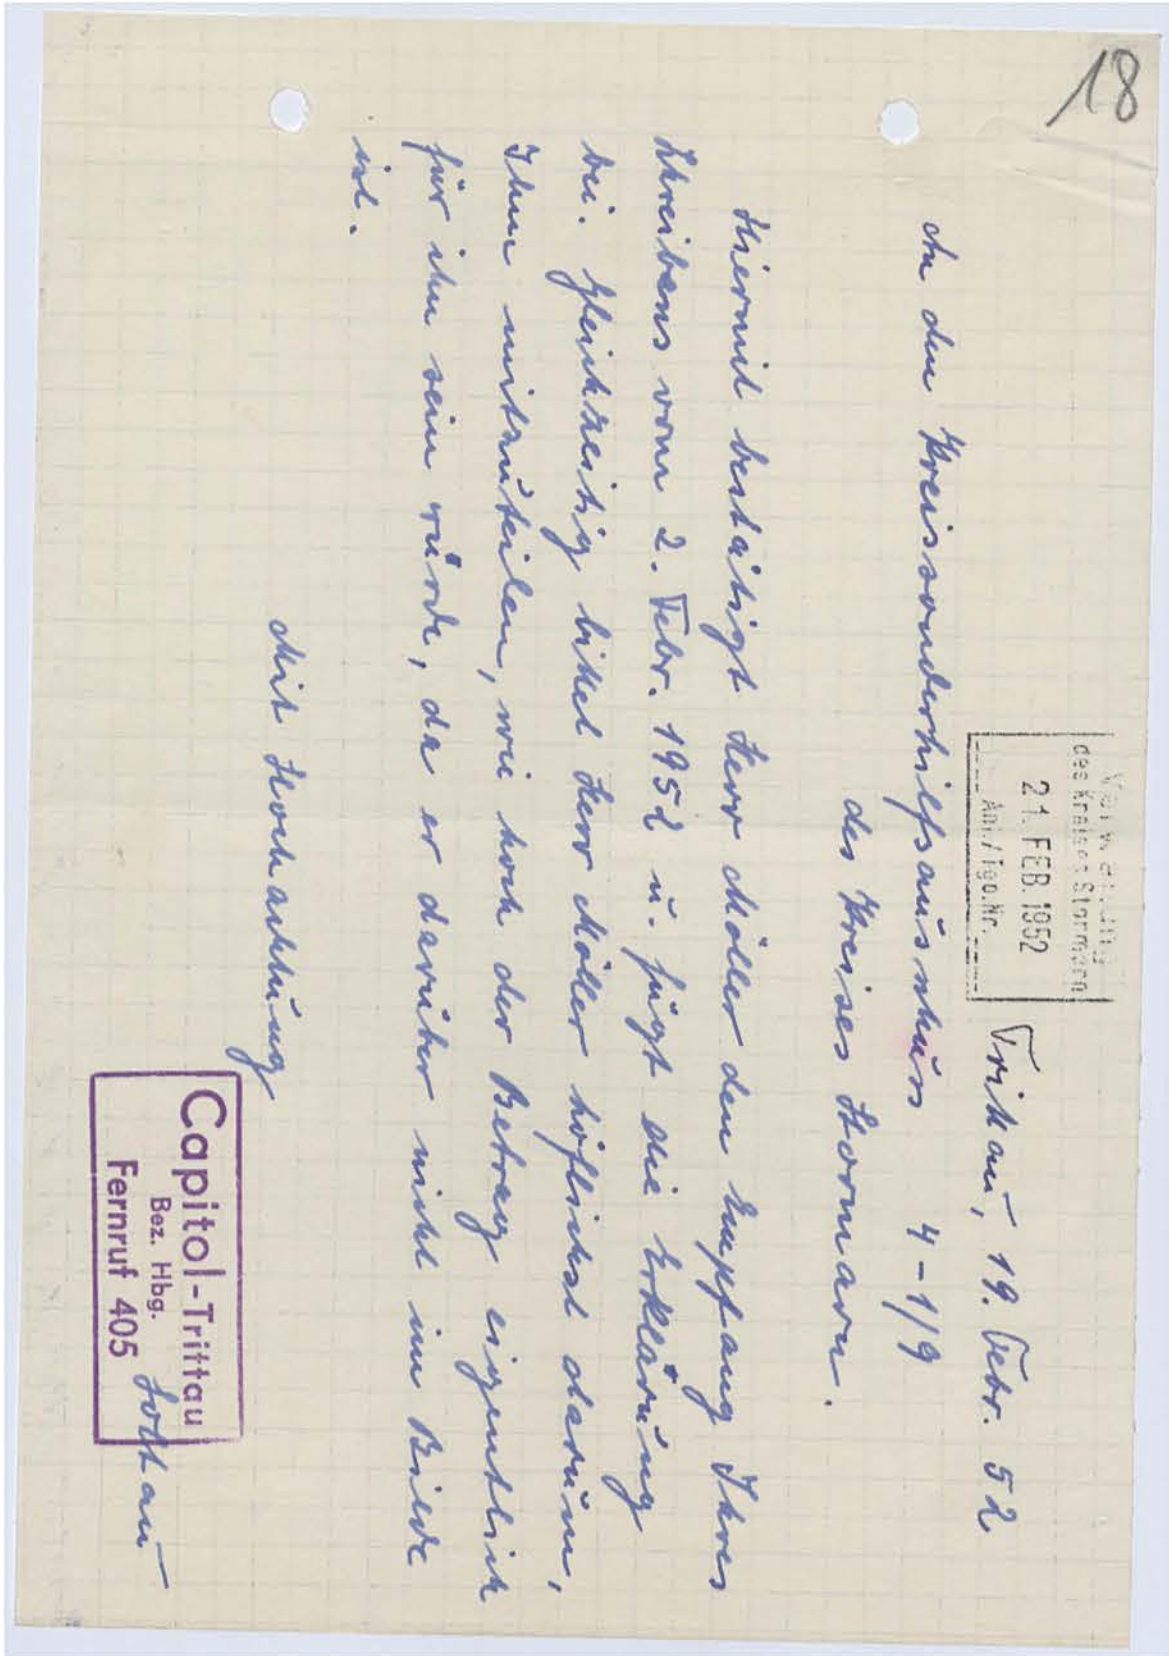 18
Verwaltung
des Kreises Stormarn
21. FEB. 1952
Ant./Tgb.Nr.
Trittau, 19. Febr. 52
An den Kreissonderhilfsausschuss 4-1/9
des Kreises Stormarn.
Hiermit bestätigt Herr Möller den Empfang Ihres
Schreibens vom 2. Febr. 1952 u. fügt die Erklärung
bei. Gleichzeitig bittet Herr Möller höflichst darum,
Ihm mitzuteilen, wie hoch der Betrag eigentlich
für ihn sein würde, da er darüber nicht im Bilde
ist.
Mit Hochachtung
Capitol-Trittau
Bez. Hbg.
Fernruf 405